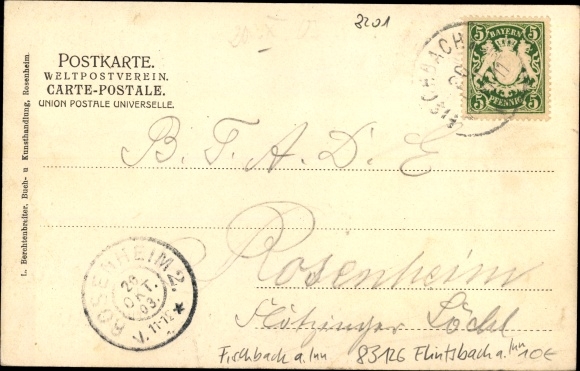 3201
POSTKARTE.
WELTPOSTVEREIN.
CARTE-POSTALE.
UNION POSTALE UNIVERSELLE.
BAYERN
5 5
5 PFENNIG 5
FISCHBACH
L. Berchtenbreiter, Buch- u Kunsthandlung, Rosenheim.
B. T. A. D. E
Rosenheim
ROSENHEIM 2.
26
OKT.
03.
V. 11-12
Flötzinger Löchl
Fischbach a. Inn 83126 Flintsbach a. Inn 10€